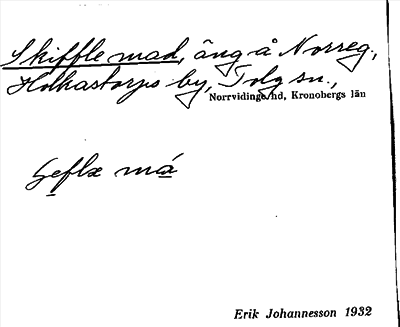 Skiffle mad, äng å Norreg.,
Holkastorps by, Tolg sn.,
Norrvidinge hd, Kronobergs län
må
Erik Johannesson 1932